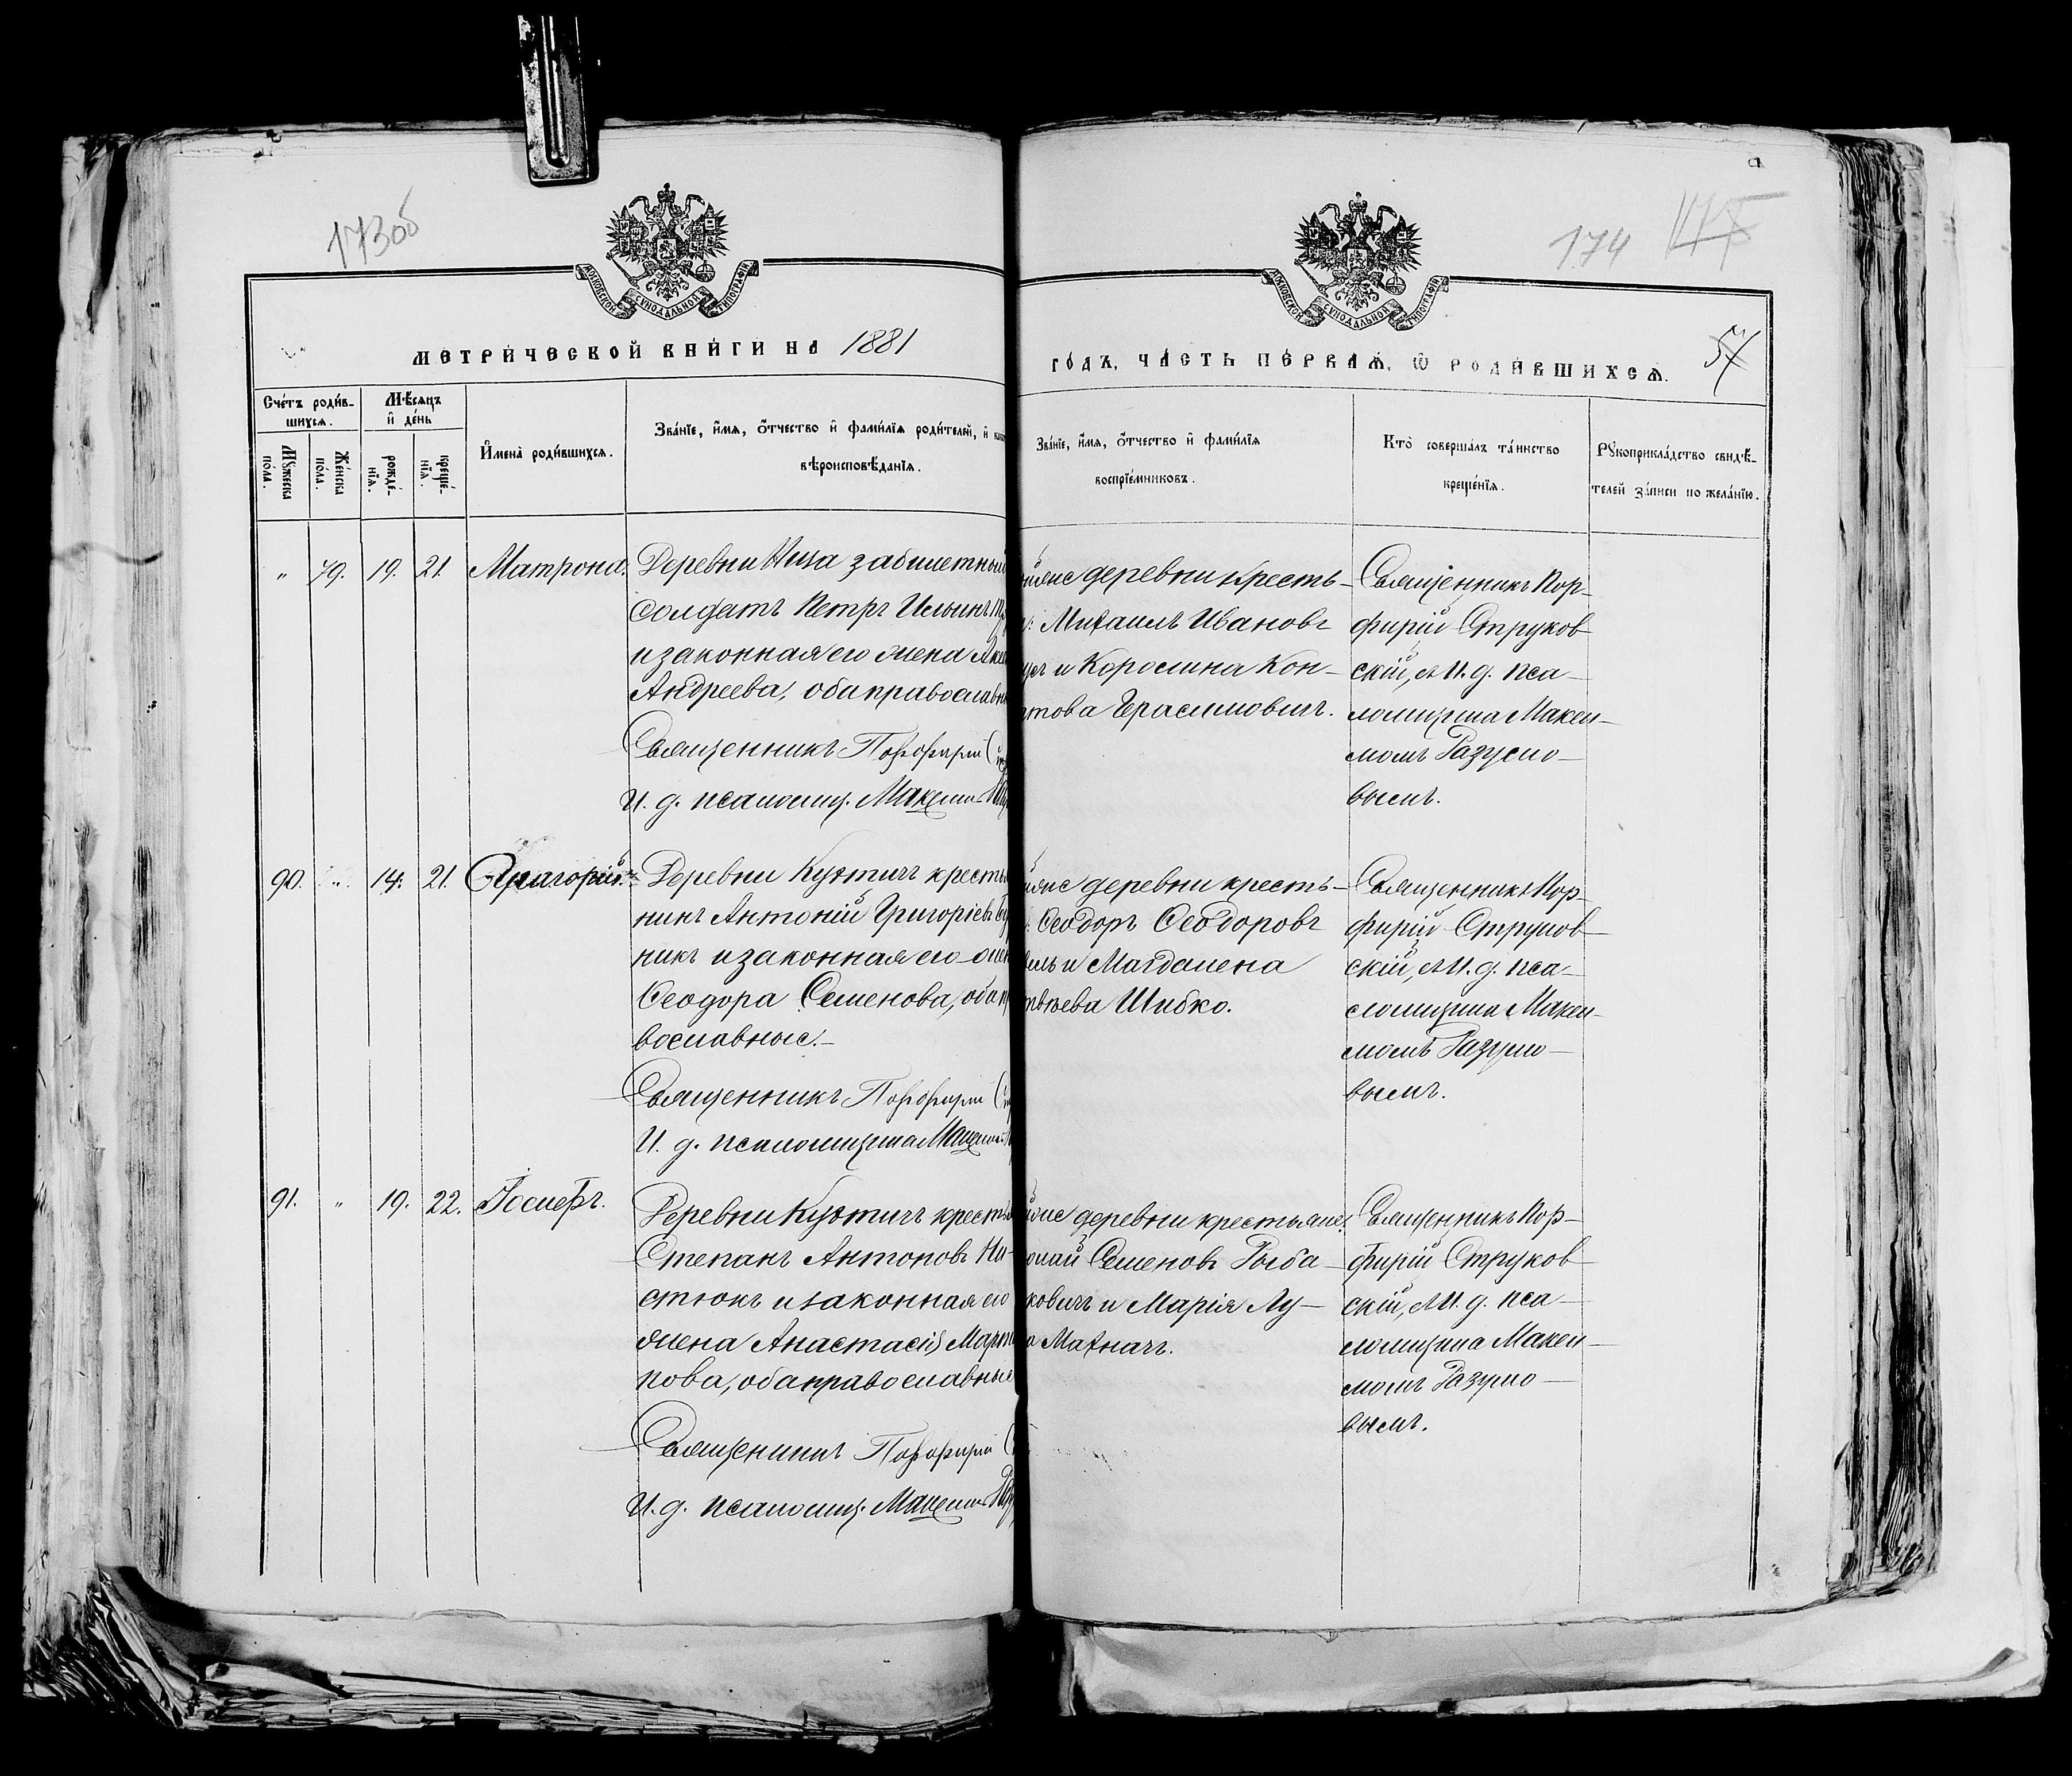 173об
174
МОСКОВСКОЙ СѴНОДАЛЬНОЙ ТИПОГРАФІИ
МОСКОВСКОЙ СѴНОДАЛЬНОЙ ТИПОГРАФІИ
МЕТРИ́ЧЕСКОЙ КНИ́ГИ НА 1881
ГО́ДЪ, ЧА́СТЬ ПЕ́РВАѦ, Ѿ РОДИ́ВШИХСѦ.
57
Сче́тъ роди́в-
шихсѧ.
Мꙋ́жеска по́ла.
Же́нска по́ла.
Мѣ́сѧцъ
и҆ де́нь
рожде́-
нїѧ.
креще́-
нїѧ.
И҆мена̀ роди́вшихсѧ.
Зва́нїе, и҆́мѧ, ѻ҆́тчество и҆ фами́лїѧ роди́телей, и҆
вѣроисповѣ́данїѧ.
Зва́нїе, и҆́мѧ, ѻ҆́тчество и҆ фами́лїѧ
воспрїе́мниковъ.
Кто̀ соверша́лъ та́инство
креще́нїѧ.
Рꙋкоприкла́дство свидѣ́-
телей за́писи по жела́нїю.
" 79. 19. 21. Матрона.
Деревни заб​илетный
солдатъ Петръ Ильинъ
и законная его жена
Андреева, оба православн
Священникъ Порфирій
И. д. псаломщ. Максимъ
деревни кресть-
Михаилъ Ивановъ
и Королина Кон-
това Герасимовичъ.
Священникъ Пор-
фирій Струков-
скій, съ И. д. пса-
ломщика Макси-
момъ Разумо-
вымъ.
90. " 14. 21. Григорій.
Деревни Куртичъ кресть
нинъ Антоній Григоріевъ
никъ и законная его жен
Ѳеодора Семенова, оба п
вославные.-
Священникъ Порфирій
И. д. псаломщика Максимъ
деревни кресть-
Ѳеодоръ Ѳеодоровъ
и Магдалена
твѣева Шибко.
Священникъ Пор-
фирій Струков-
скій, съ И. д. пса-
ломщика Макси-
момъ Разумо-
вымъ.
91. " 19. 22. Іосифъ.
Деревни Куртичъ крест
Степанъ Антоновъ На-
стюкъ и законная его
жена Анастасія Март
нова, оба православные
Священникъ Порфирій
И. д. псаломщ. Максимъ
деревни крестьяне:
Семеновъ Рыба-
ковичъ и Марія Лу-
а Махначъ.
Священникъ Пор-
фирій Струков-
скій, съ И. д. пса-
ломщика Макси-
момъ Разумо-
вымъ.